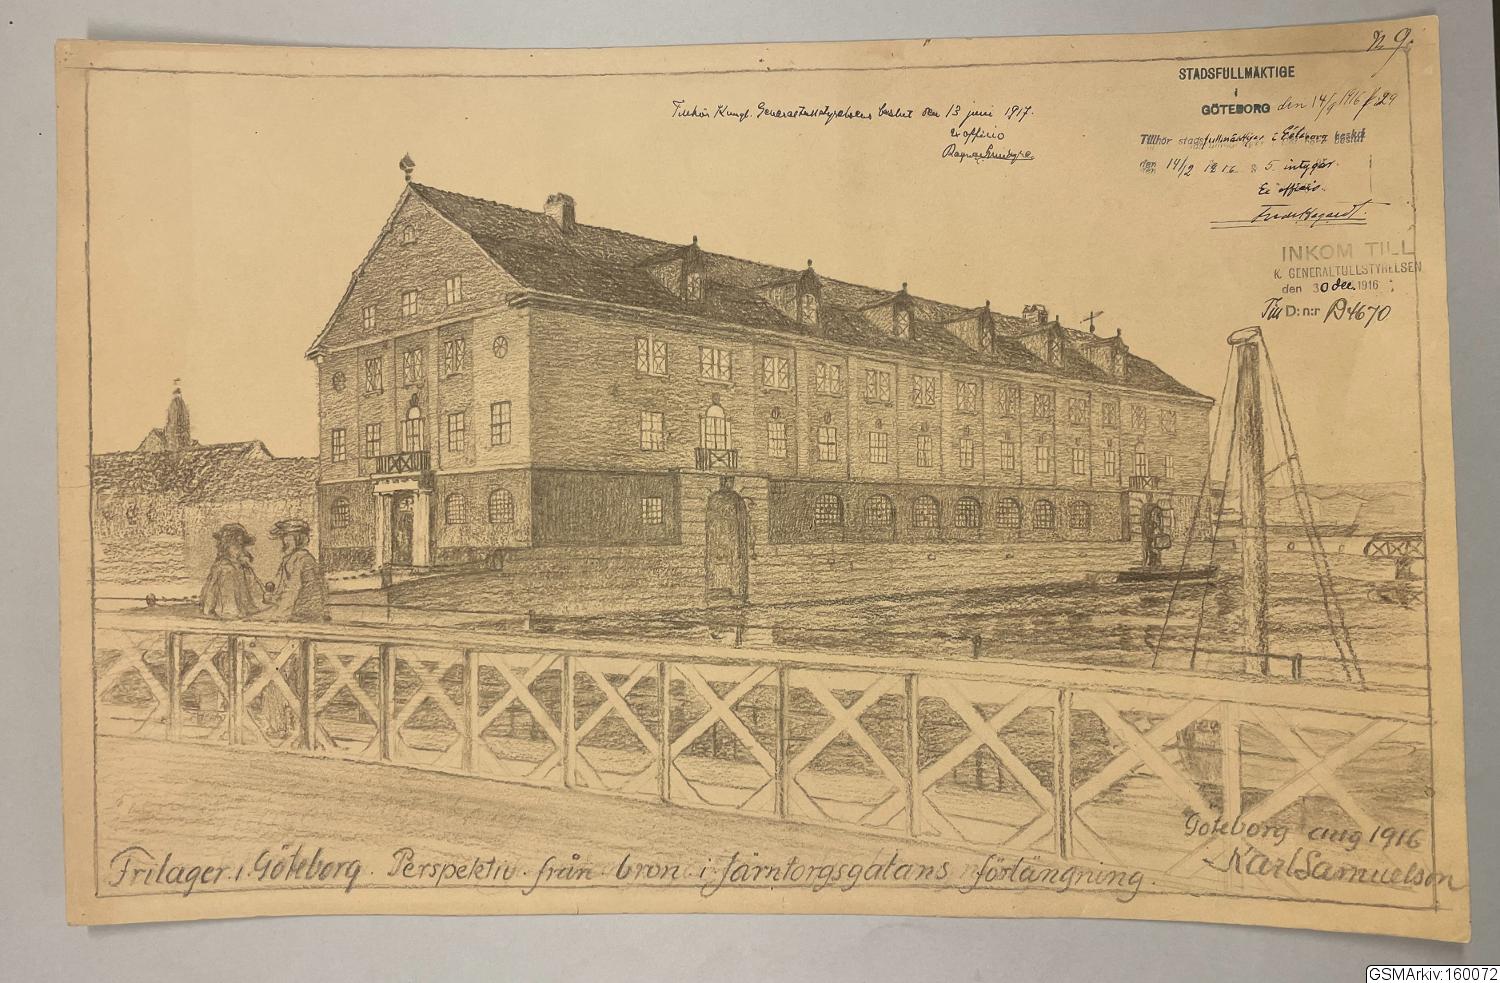 N 9.
STADSFULLMÄKTIGE
i
GÖTEBORG den 14/12 1916 § 29
Tillhör stadsfullmäktiges i Göteborg beslut
den 14/12 1916 § 5, intygar.
Ex officio.
Tillhör Kungl. Generaltullstyrelsens beslut den 13 juni 1917.
Ex officio
Ragnar
INKOM TILL
K. GENERALTULLSTYRELSEN
den 30 dec. 1916
Till D:n:r D4670
Göteborg aug 1916
Karl Samuelson
Frilager i Göteborg. Perspektiv från bron i Järntorgsgatans förlängning.
GSMArkiv:160072